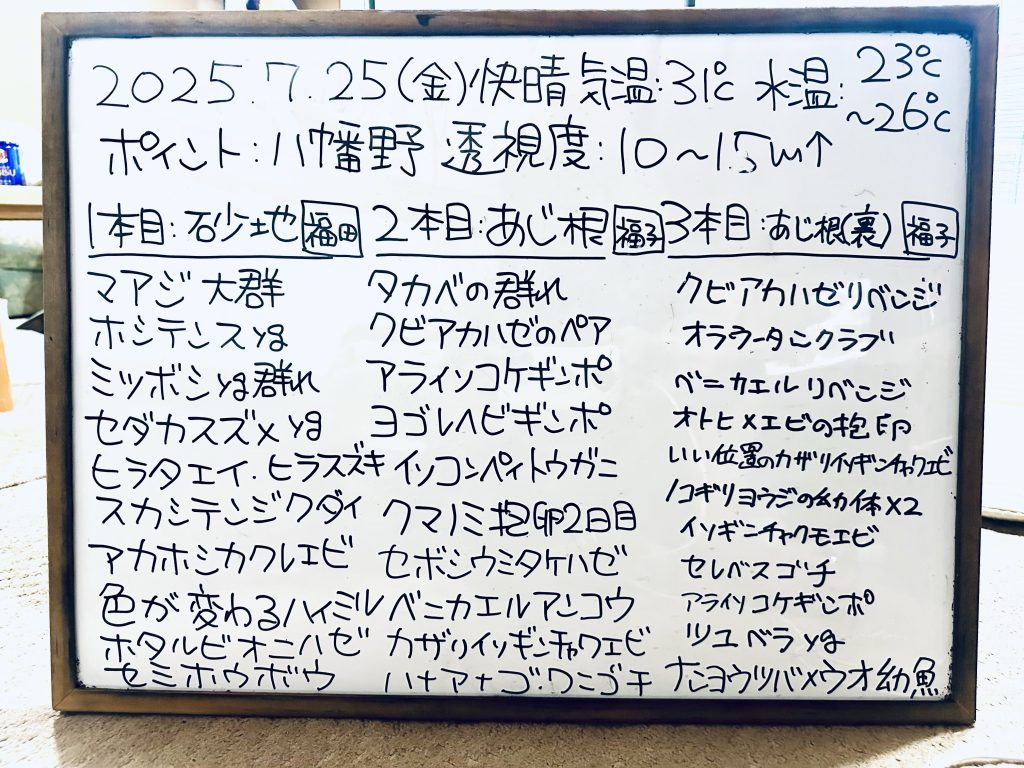 2025.7.25(金)快晴 気温:31℃ 水温:23℃
~26℃
ポイント:八幡野 透視度:10~15m↑
1本目:砂地 福田
マアジ大群
ホシテンスyg
ミツボシyg群れ
セダカスズメyg
ヒラタエイ.ヒラスズキ
スカシテンジクダイ
アカホシカクレエビ
色が変わるハイミル
ホタルビオニハゼ
セミホウボウ
2本目:あじ根 福子
タカベの群れ
クビアカハゼのペア
アライソコケギンポ
ヨゴレヘビギンポ
イソコンペイトウガニ
クマノミ抱卵2日目
セボシウミタケハゼ
ベニカエルアンコウ
カザリイソギンチャクエビ
ハナアナゴ.ワニゴチ
3本目:あじ根(裏) 福子
クビアカハゼリベンジ
オラウータンクラブ
ベニカエルリベンジ
オトヒメエビの抱卵
いい位置のカザリイソギンチャクエビ
ノコギリヨウジの幼体×2
イソギンチャクモエビ
セレベスゴチ
アライソコケギンポ
ツユベラyg
ナンヨウツバメウオ幼魚